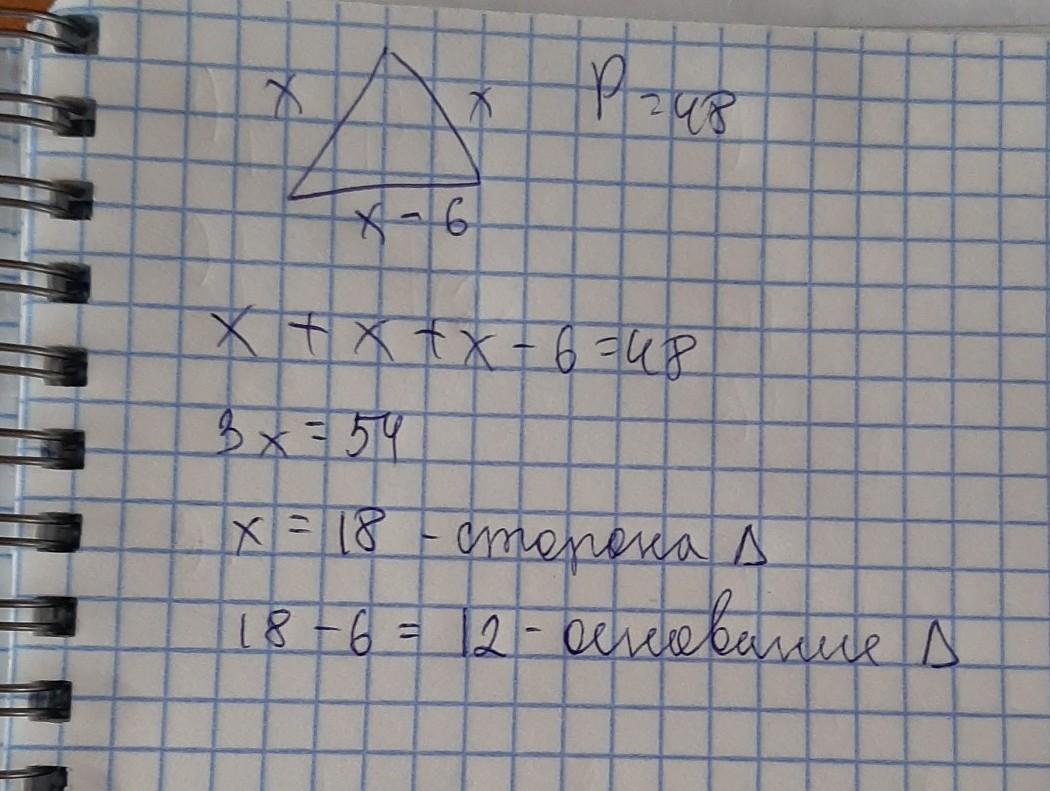 x x P = 48
x - 6
x + x + x - 6 = 48
3x = 54
x = 18 - сторона Δ
18 - 6 = 12 - основание Δ